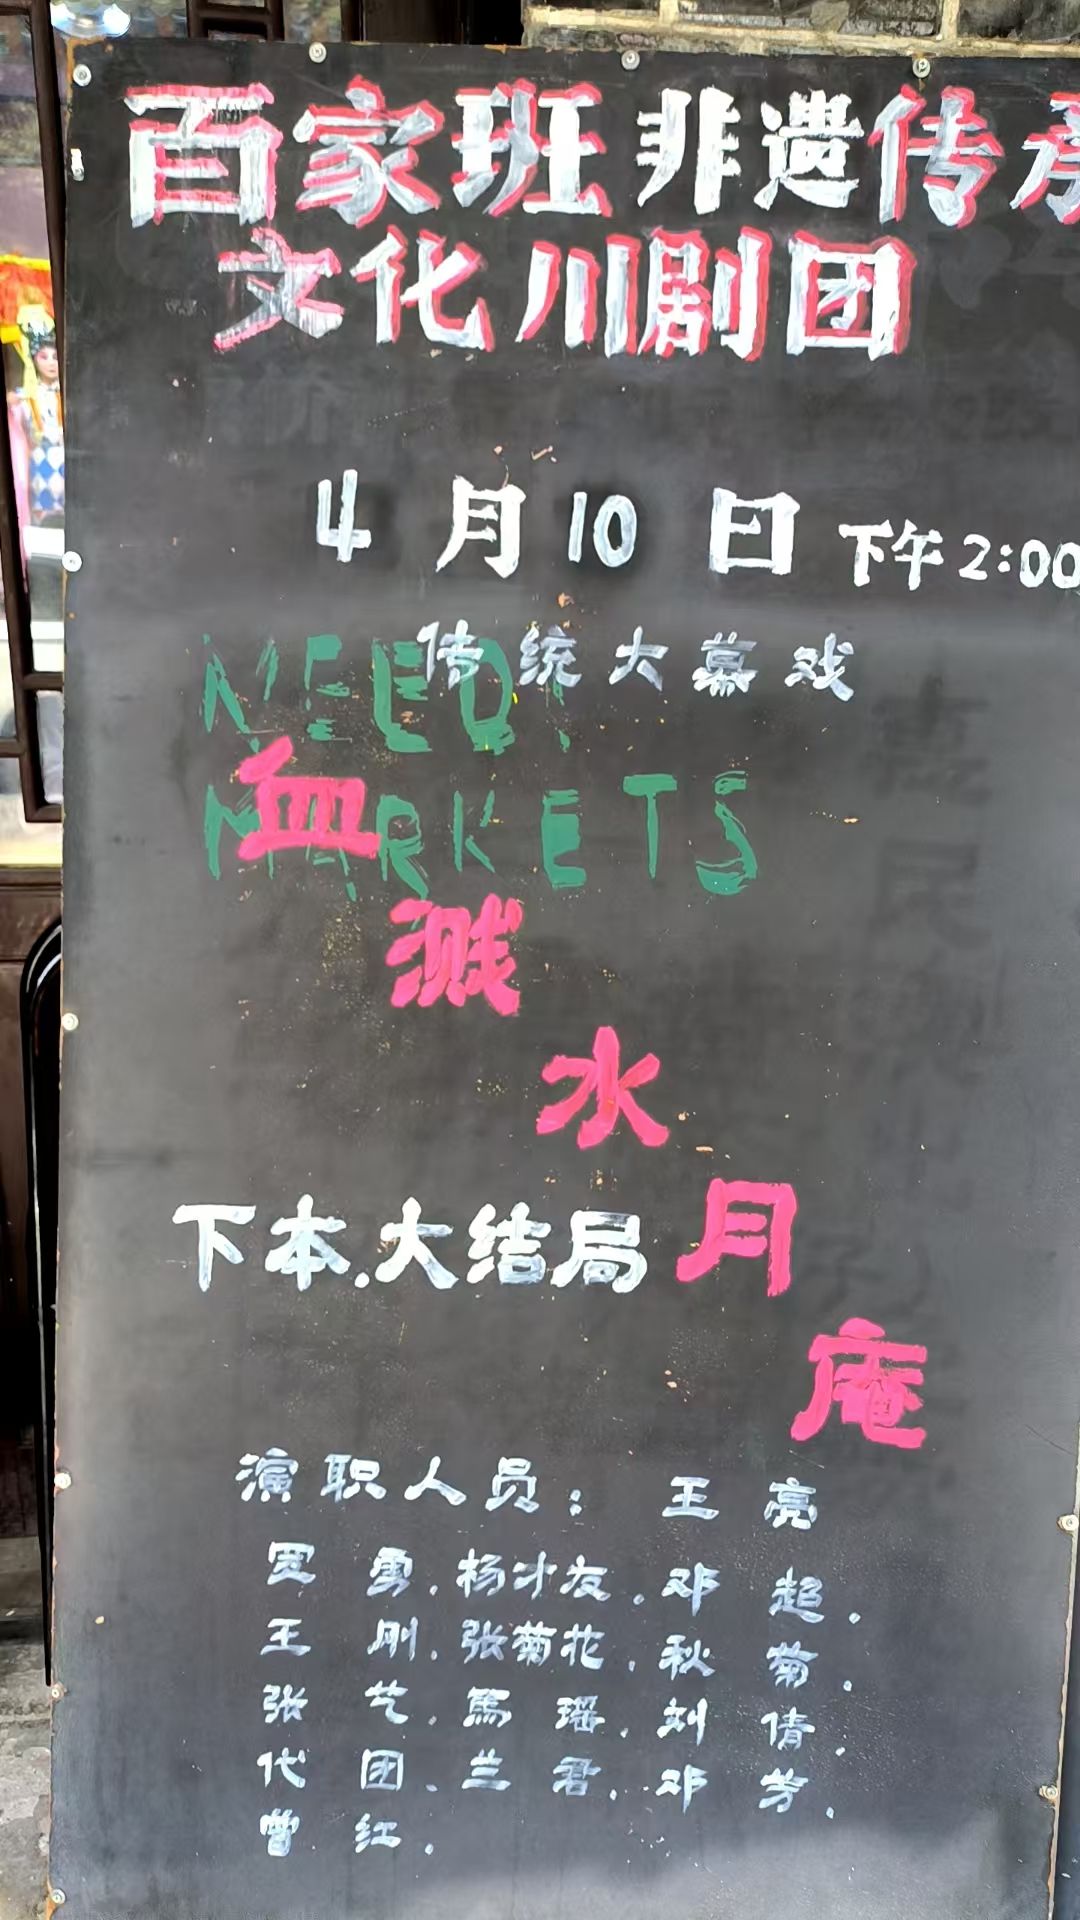 百家班非遗传承
文化川剧团
4月10日 下午2:00
传统大幕戏
NEED
MARKETS
血溅水月庵
下本.大结局
演职人员: 王亮
罗勇.杨才友.邓超.
王刚.张菊花.秋菊.
张艺.馬瑶.刘倩.
代团.兰君.邓芳.
曹红.